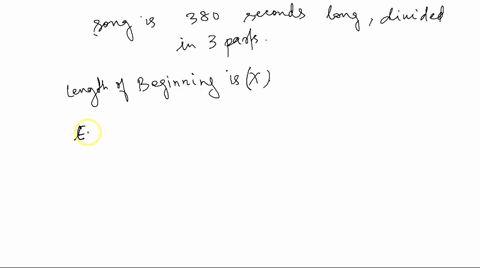 song is 380 seconds long, divided
in 3 parts.
Length of Beginning is (X)
E